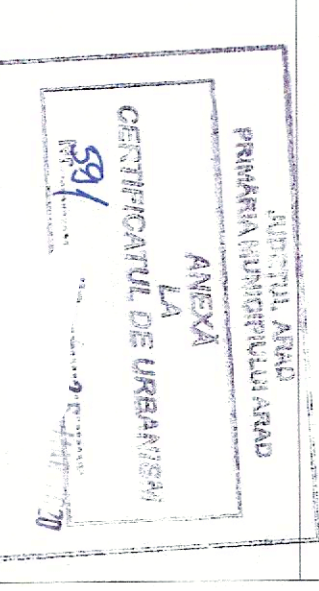 JUDEȚUL ARAD
PRIMĂRIA MUNICIPIULUI ARAD
ANEXĂ
LA
CERTIFICATUL DE URBANISM
591